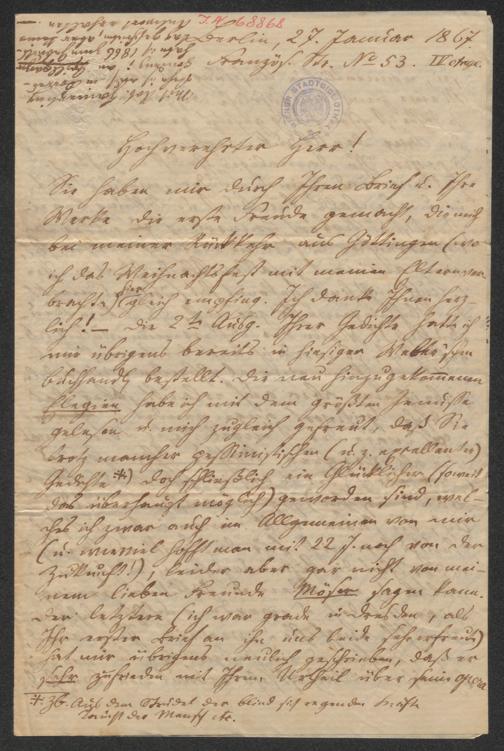 J.N. 68868
Berlin, 27. Januar 1867.
Französ. Str. No 53. IV
Hochverehrter Herr!
Sie haben mir durch Ihren Brief u. Ihre
Werke die erste Freude gemacht, die mich
bei meiner Rückkehr aus Göttingen (wo
ich das Weihnachtsfest mit meinen Eltern ver-
brachte) hier gleich empfing. Ich danke Ihnen herz-
lich! — Die 2te Ausg. Ihrer Gedichte hatte ich
mir übrigens bereits in hiesiger Weber'schen
Buchhandl. bestellt. Die neu hinzugekommenen
Elegien habe ich mit dem größten Genusse
gelesen u. mich zugleich gefreut, daß Sie
trotz mancher pessimistischen (u. z. excellenten)
Gedichte *) doch schließlich ein Glücklicher (soweit
das überhaupt möglich) geworden sind, wel-
ches ich zwar auch im Allgemeinen von mir
(u. wieviel hofft man mit 22 J. noch von der
Zukunft!) leider aber gar nicht von mei-
nem lieben Freunde Möser sagen kann.
Der letztere (ich war grade in Dresden, als
Ihr erster Brief an ihn uns beide sehr erfreute)
hat mir übrigens neulich geschrieben, daß er
sehr zufrieden mit Ihrem Urtheil über seine opera
* zb. Aus dem Strudel der blind sich regenden Kräfte
Taucht der Mensch etc.